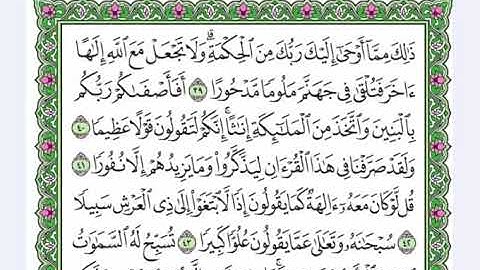 ذَٰلِكَ مِمَّآ أَوۡحَىٰٓ إِلَيۡكَ رَبُّكَ مِنَ ٱلۡحِكۡمَةِۗ وَلَا تَجۡعَلۡ مَعَ ٱللَّهِ إِلَٰهًا
ءَاخَرَ فَتُلۡقَىٰ فِي جَهَنَّمَ مَلُومٗا مَّدۡحُورًا ٣٩ أَفَأَصۡفَىٰكُمۡ رَبُّكُم
بِٱلۡبَنِينَ وَٱتَّخَذَ مِنَ ٱلۡمَلَٰٓئِكَةِ إِنَٰثًاۚ إِنَّكُمۡ لَتَقُولُونَ قَوۡلًا عَظِيمٗا ٤٠
وَلَقَدۡ صَرَّفۡنَا فِي هَٰذَا ٱلۡقُرۡءَانِ لِيَذَّكَّرُواْ وَمَا يَزِيدُهُمۡ إِلَّا نُفُورٗا ٤١
قُل لَّوۡ كَانَ مَعَهُۥٓ ءَالِهَةٞ كَمَا يَقُولُونَ إِذٗا لَّٱبۡتَغَوۡاْ إِلَىٰ ذِي ٱلۡعَرۡشِ سَبِيلٗا
٤٢ سُبۡحَٰنَهُۥ وَتَعَٰلَىٰ عَمَّا يَقُولُونَ عُلُوّٗا كَبِيرٗا ٤٣ تُسَبِّحُ لَهُ ٱلسَّمَٰوَٰتُ